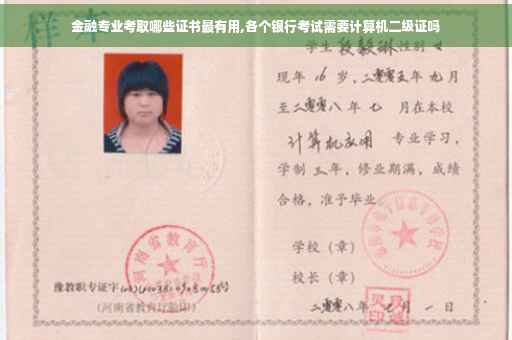 金融专业考取哪些证书最有用,各个银行考试需要计算机二级证吗
学生 段毅琳 性别 女
现年 16 岁，二零零五年 九月
至二零零八年 七 月在本校
计算机应用 专业学习，
学制 三 年，修业期满，成绩
合格，准予毕业。
学校（章）
校长（章）
二零零八年 七 月 一 日
河南省教育厅
豫教职专证字
（河南省教育厅验印）